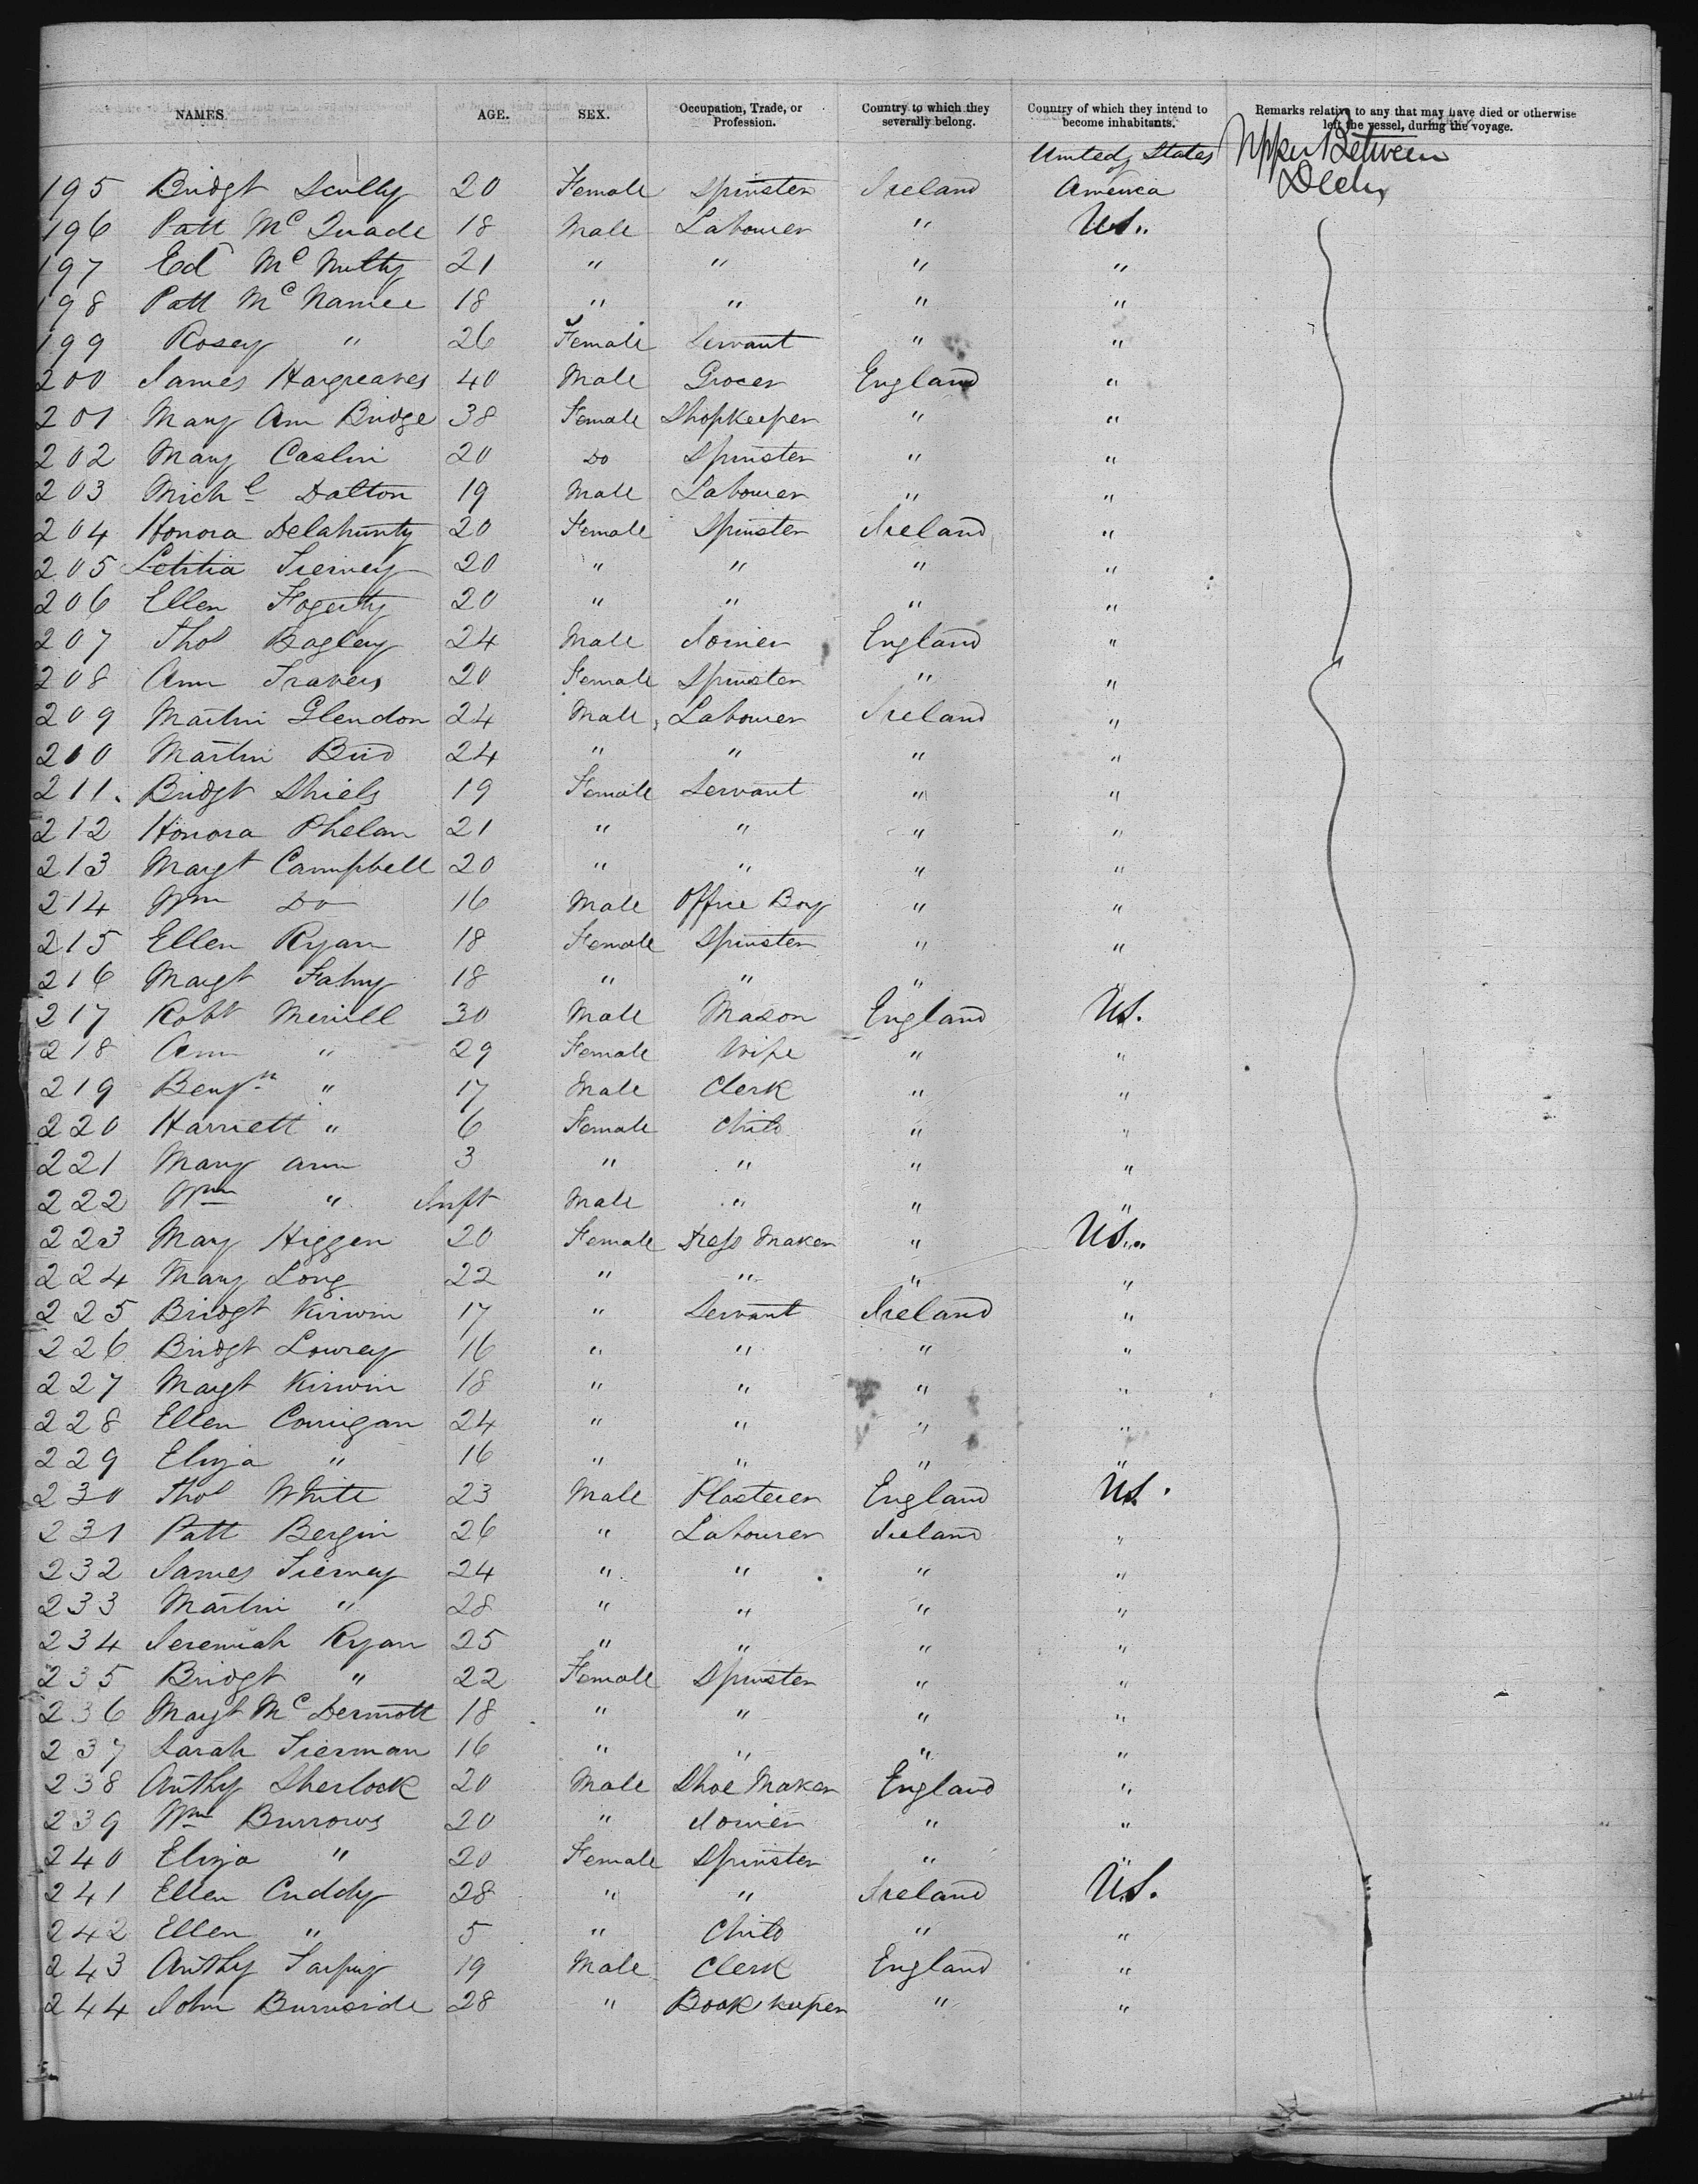 NAMES. AGE. SEX. Occupation, Trade, or Profession. Country to which they severally belong. Country of which they intend to become inhabitants. Remarks relative to any that may have died or otherwise left the vessel, during the voyage.
United States Upper Between
195 Bridgt Scully 20 Female Spinster Ireland America Decks
196 Patt McQuade 18 Male Labourer " U.S."
197 Ed McNulty 21 " " " "
198 Patt McNamee 18 " " " "
199 Rosey " 26 Female Servant " "
200 James Hargreaves 40 Male Grocer England "
201 Mary Ann Bridge 38 Female Shopkeeper " "
202 Mary Caslin 20 Do Spinster " "
203 Michl Dalton 19 Male Labourer " "
204 Honora Delahunty 20 Female Spinster Ireland "
205 Letitia Tierney 20 " " " "
206 Ellen Fogerty 20 " " " "
207 Thos Bagley 24 Male Joiner England "
208 Ann Travers 20 Female Spinster " "
209 Martin Glendon 24 Male Labourer Ireland "
210 Martin Bird 24 " " " "
211. Bridgt Shiels 19 Female Servant " "
212 Honora Phelan 21 " " " "
213 Margt Campbell 20 " " " "
214 Wm Do 16 Male Office Boy " "
215 Ellen Ryan 18 Female Spinster " "
216 Margt Fahy 18 " " "
217 Robt Merrill 30 Male Mason England U.S.
218 Ann " 29 Female Wife " "
219 Benjn " 17 Male Clerk " "
220 Harriett " 6 Female Child " "
221 Mary Ann 3 " " " "
222 Wm " Inft Male " " "
223 Mary Higgen 20 Female Dress Maker " U.S."
224 Mary Long 22 " " " "
225 Bridgt Kirwin 17 " Servant Ireland "
226 Bridgt Lowrey 16 " " " "
227 Margt Kirwin 18 " " " "
228 Ellen Corrigan 24 " " " "
229 Eliza " 16 " " " "
230 Thos White 23 Male Plasterer England U.S.
231 Patt Bergin 26 " Labourer Ireland "
232 James Tierney 24 " " " "
233 Martin " 28 " " " "
234 Jeremiah Ryan 25 " " " "
235 Bridgt " 22 Female Spinster " "
236 Margt McDermott 18 " " " "
237 Sarah Tierman 16 " " " "
238 Anthy Sherlock 20 Male Shoe Maker England "
239 Wm Burrows 20 " Joiner " "
240 Eliza " 20 Female Spinster " "
241 Ellen Cuddy 28 " " Ireland U.S.
242 Ellen " 5 " Child " "
243 Anthy 19 Male Clerk England "
244 John Burnside 28 " Book keeper " "